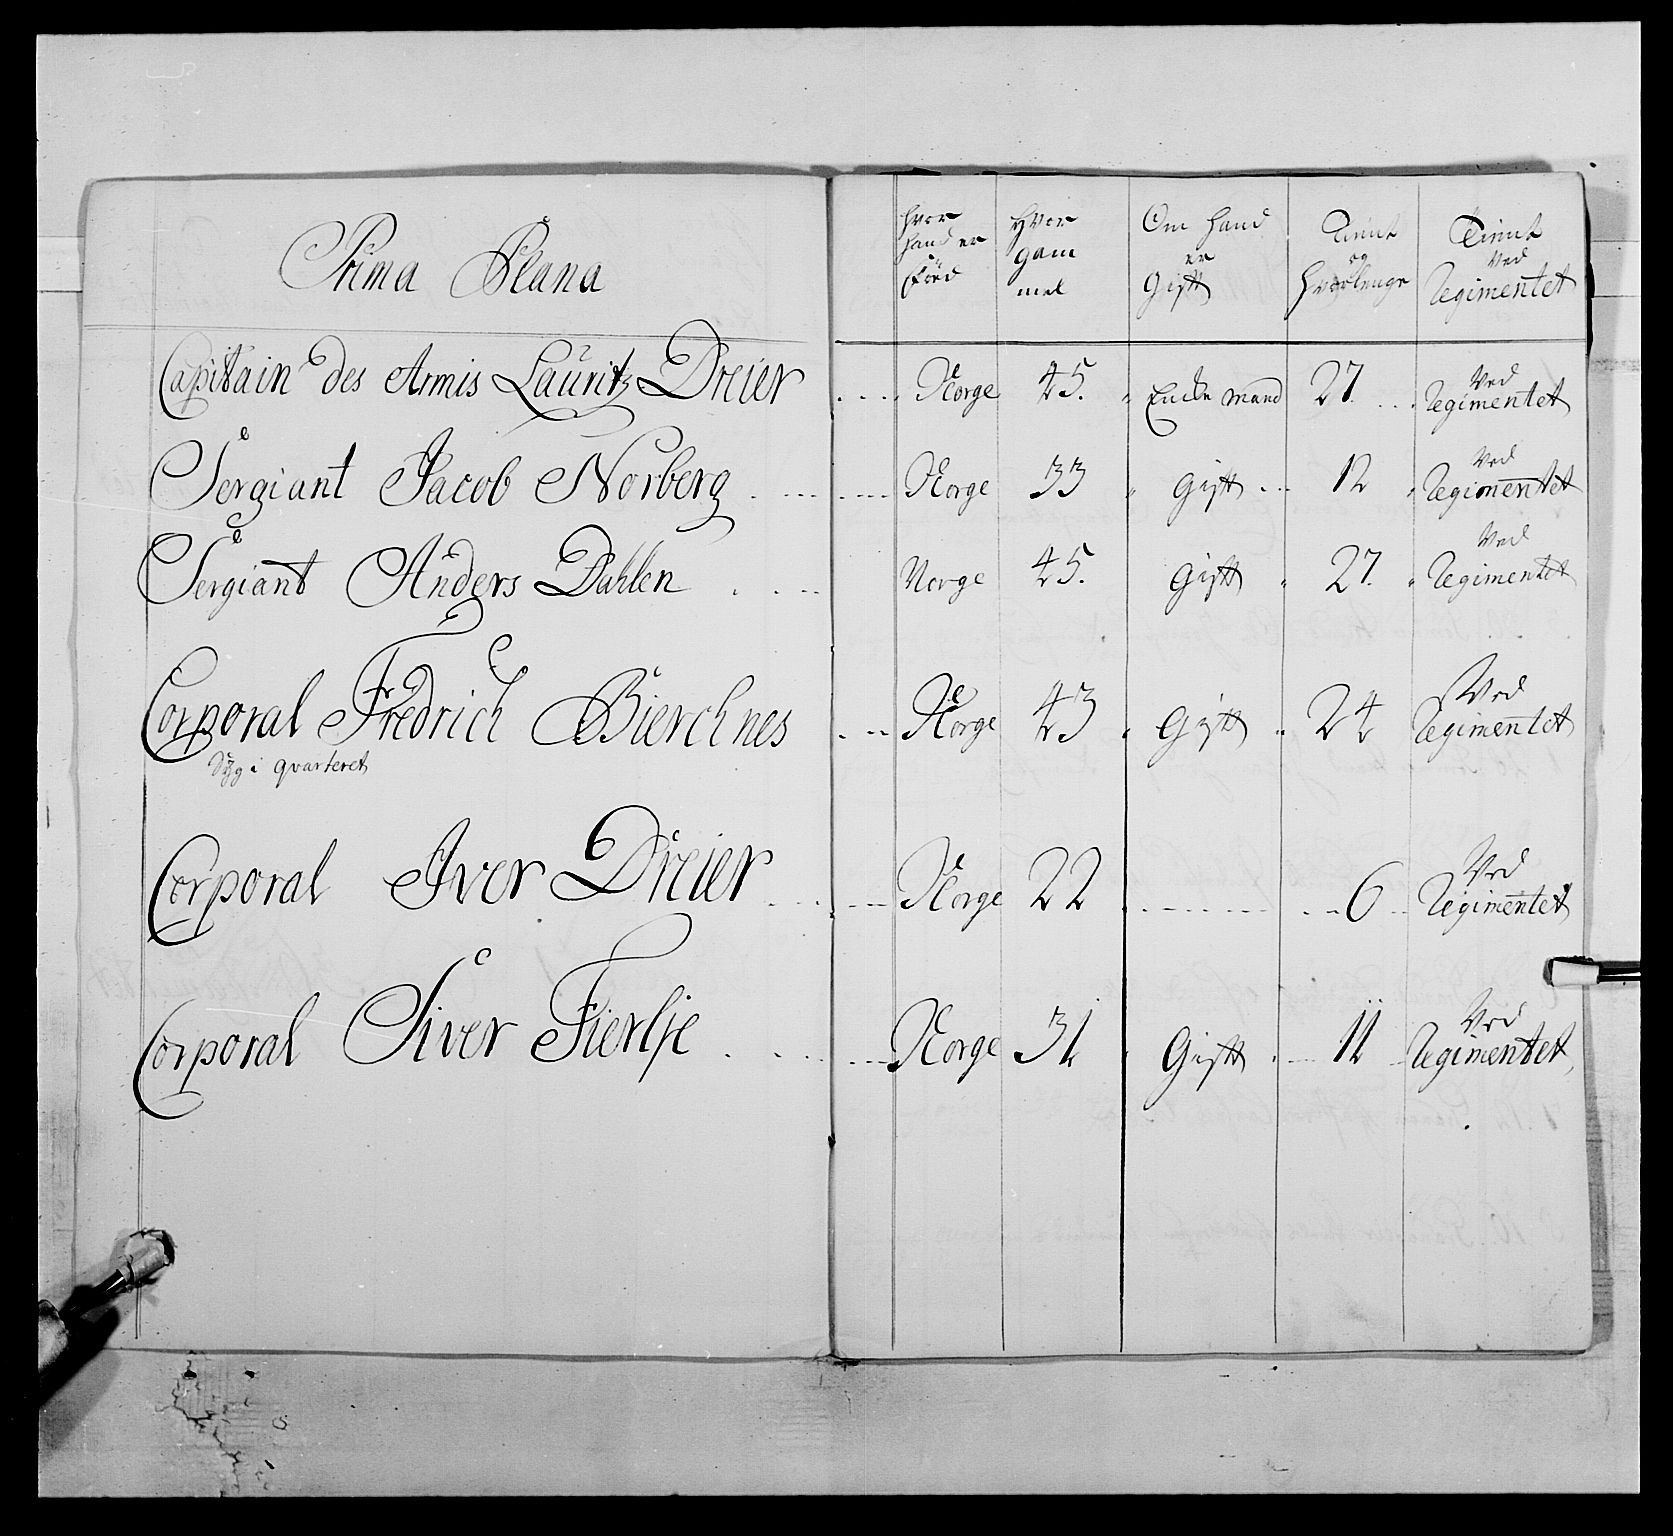 Prima Plana
Hvor hand er Föd
Hvor gam mel
Om hand er Gift
Tient og Hvorlenge
Tient Ved Regimentet
Capitain des Armis Lauritz Dreier .... Norge 45. Encke Mand 27. ... Ved Regimentet
Sergiant Jacob Norberg ...... Norge 33 Gift ... 12 Ved Regimentet
Sergiant Anders Dahlen .... Norge 45. Gift 27. Ved Regimentet
Corporal Fredrich Bierchnes ... Norge 43 Gift 24 Ved Regimentet
Syg i qvarteret
Corporal Iver Dreier ..... Norge 22 ........ 6 Ved Regimentet
Corporal Siver Fierlje ..... Norge 31 Gift ... 11 Ved Regimentet